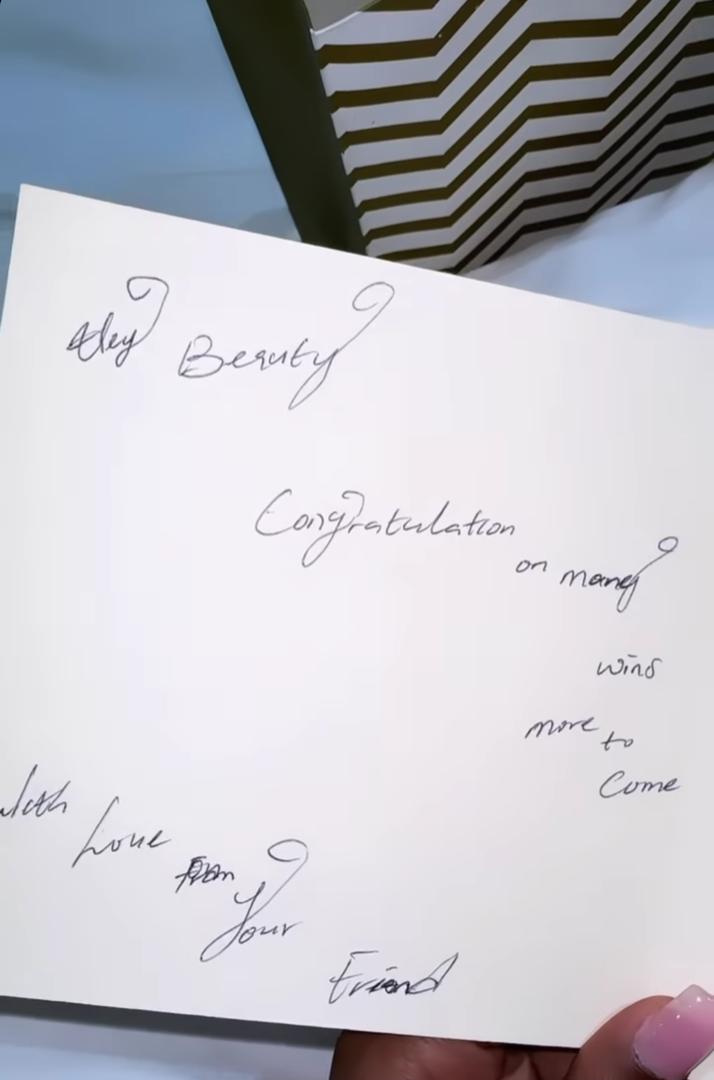 Hey Beauty
Congratulation
on many
wins
more to
Come
with Love from
Your
Friend